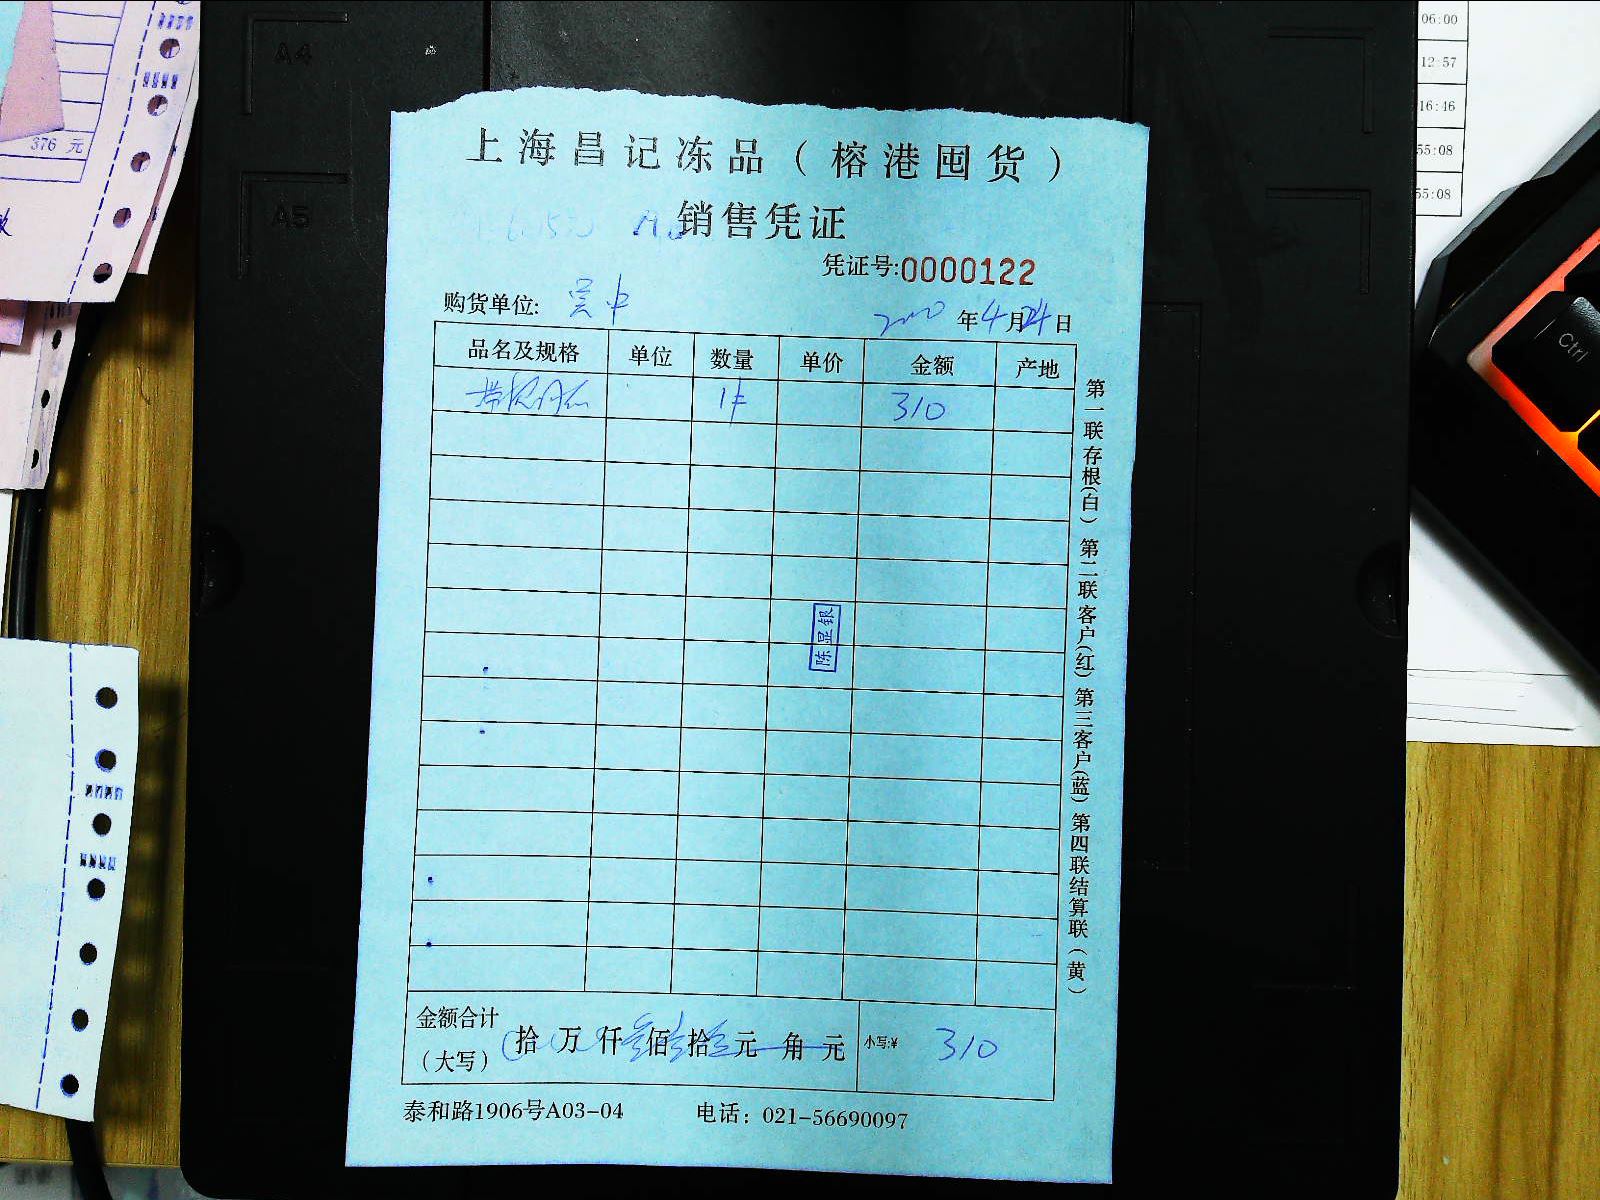 上海昌记冻品（榕港囤货）
销售凭证
凭证号:0000122
购货单位: 吴中
年4月24日
品名及规格 单位 数量 单价 金额 产地
1件 310
陈显银
金额合计
（大写） 拾 万 仟 佰 拾 元 角 元 小写:¥ 310
泰和路1906号A03-04 电话：021-56690097
第一联存根(白) 第二联客户(红) 第三客户(蓝) 第四联结算联(黄)
A4
A5
376 元
06:00
12:57
16:46
55:08
55:08
Ctrl